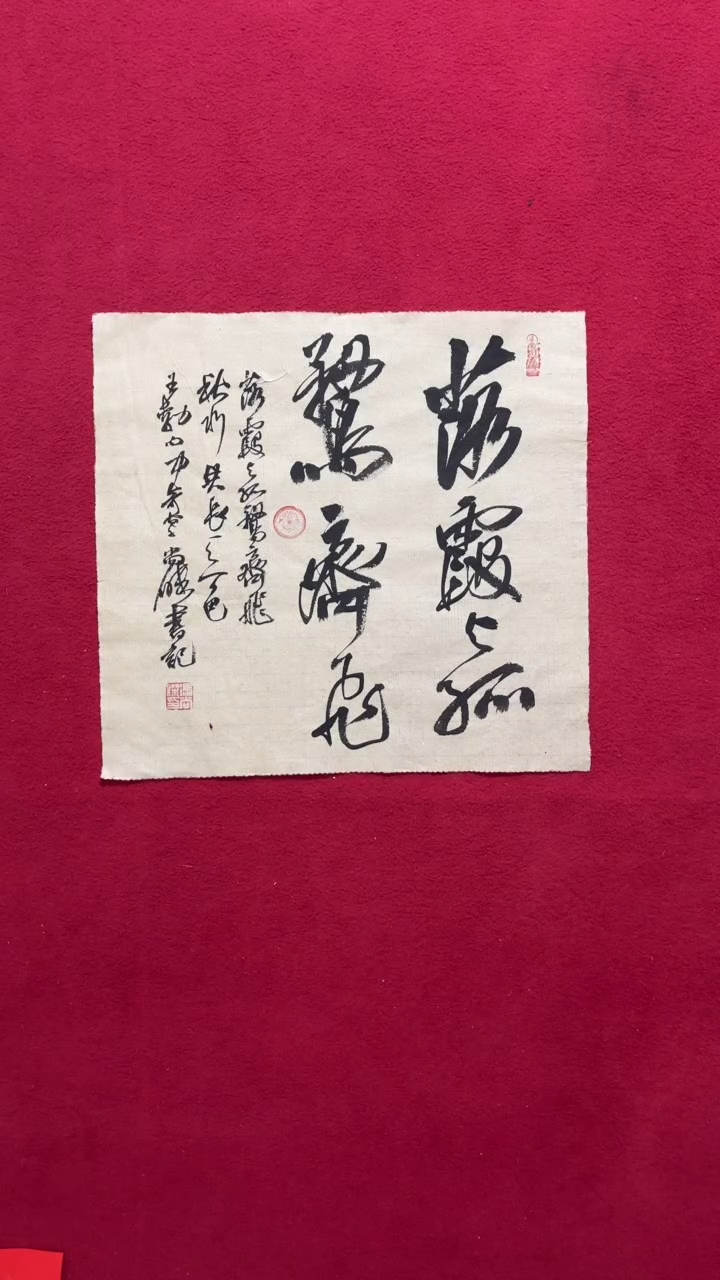 落霞与孤
鹜齐飞
落霞与孤鹜齐飛
秋水共长天一色
王勃句
书记